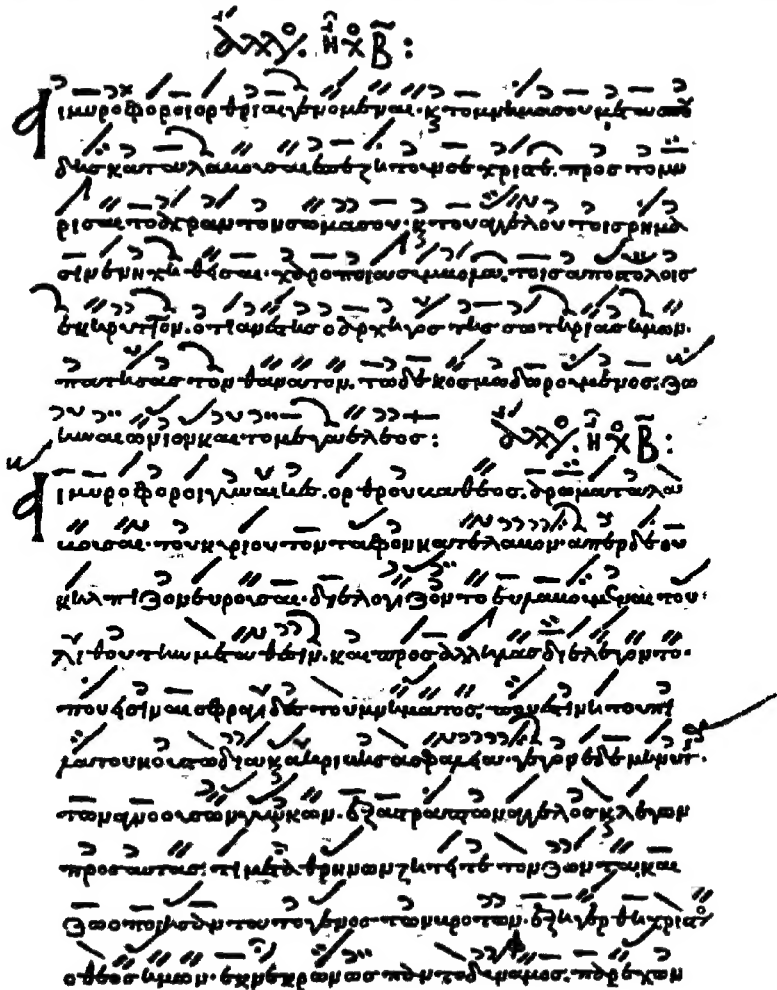 ἦχος β:
αιμυροφοροιορθριαιγενομεναι· κ τομνημασουμετασπου
δηςκαταλαβουσαιεζητουνσεχριστε. προς τομυ
ρισαιτοαχραντονσωμασου· κ τουαγγελουτοιςρημα
σινενηχηθεισαι. χαροποιασυμβολα. τοιςαποστολοις
εκηρυττον. οτιανεστηοαρχηγοςτηςσωτηριαςημων.
πατησαςτονθανατον. τωδεκοσμωδωρουμενος. ζω
ηναιωνιονκαιτομεγαελεος: ἦχος β:
αιμυροφοροιγυναικες. ορθρουβαθεος. αρωματαλα
βουσαι. τουκυριουτονταφονκατελαβον απερδεου
κηλπιζονευρουσαι. διελογιζοντοευλαβουμεναιτου
λιθουτηνμεταθεσιν. καιπροςαλληλαςδιελεγοντο.
πουεισιναισφραγιδεςτουμνηματος. πουεστινητουπι
λατουκουστωδιακαιακριβηςασφαλεια. γεγονεδεμηνυτ.
τωναγνοουσωνγυναικων. εξαστραπτωναγγελοςκλεγων
προςαυταςτιμεταθρηνωνζητειτε τονζωντακαι
ζωοποιησαντατογενοςτωνβροτων. εξηγερθηχριστος
οθεοςημων. εκνεκρωνωςπαντοδυναμος. παρεχων